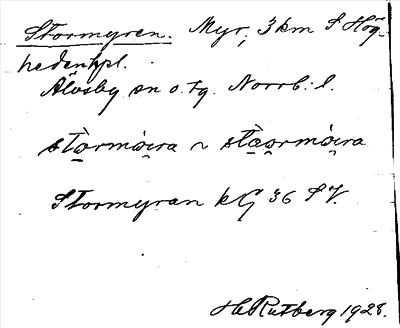 Stormyren. Myr, 3 km S Hög-
hedenhpl.
Älvsby sn o. tg. Norrb: l.
stormỳra ~
Stormyran kG 36 SV.
H. Rutberg 1928.